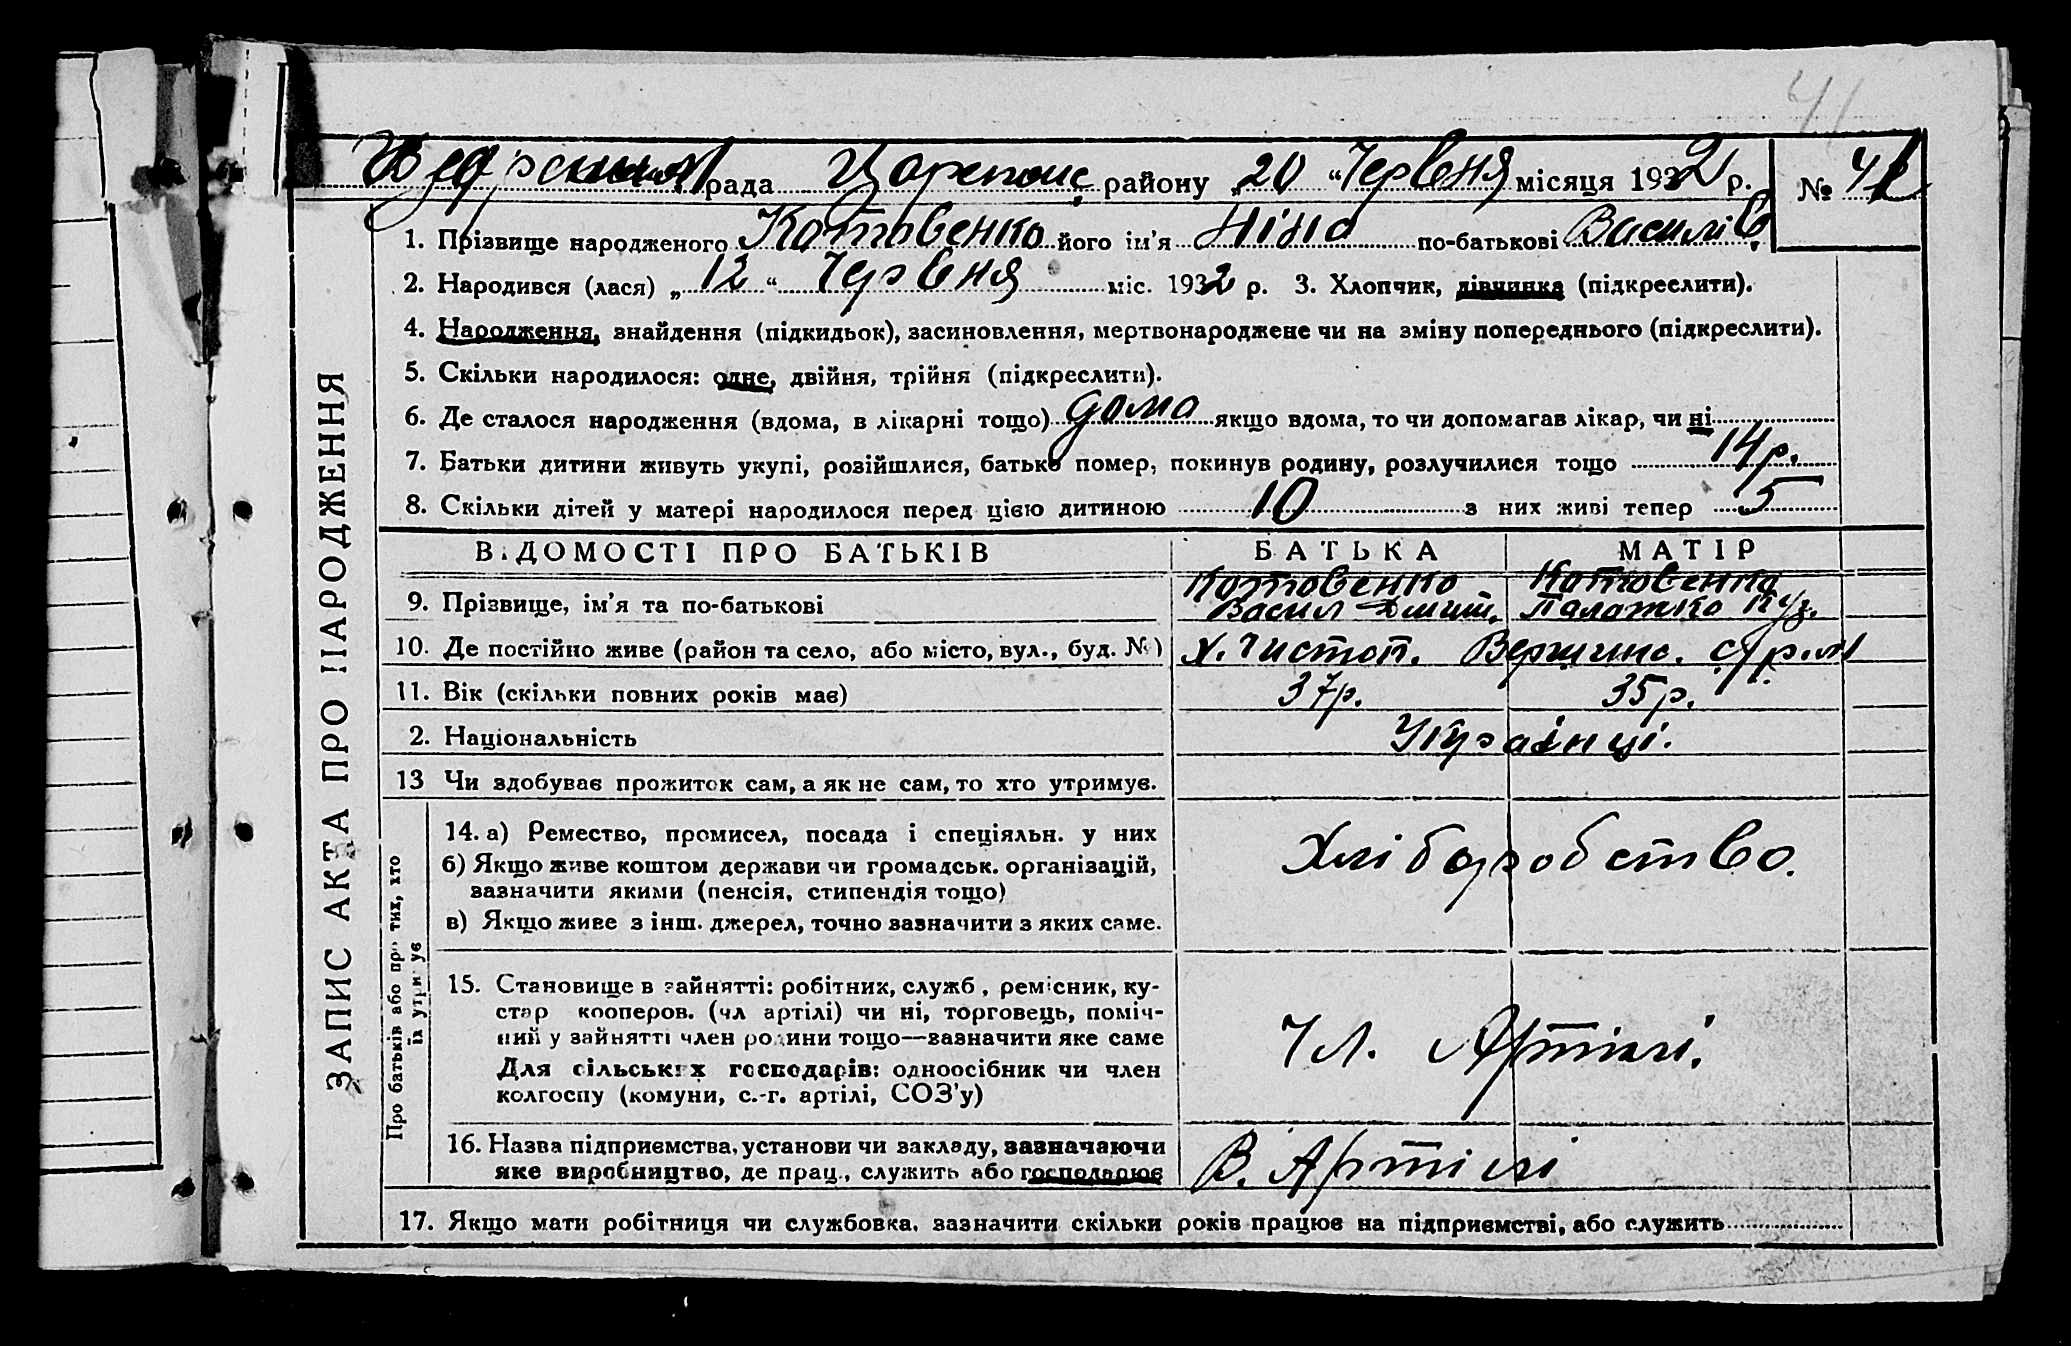 41
рада Царепоіс району „20 “ Червня місяця 1932 р. № 41
1. Прізвище народженого Котовенко його ім’я Ніна по-батькові Василів
2. Народився (лася) „ 12 “ Червня міс. 1932 р. 3. Хлопчик, дівчинка (підкреслити).
4. Народження, знайдення (підкидьок), засиновлення, мертвонароджене чи на зміну попереднього (підкреслити).
5. Скільки народилося: одне, двійня, трійня (підкреслити).
6. Де сталося народження (вдома, в лікарні тощо) дома якщо вдома, то чи допомагав лікар, чи ні
7. Батьки дитини живуть укупі, розійшлися, батько помер, покинув родину, розлучилися тощо 14 р.
8. Скільки дітей у матері народилося перед цією дитиною 10 з них живі тепер 5
ВІДОМОСТІ ПРО БАТЬКІВ БАТЬКА МАТІР
9. Прізвище, ім’я та по-батькові Котовенко Васил Дмит. Котовенко Палажка Куз.
10. Де постійно живе (район та село, або місто, вул., буд. №) Х. Чистоп.
11. Вік (скільки повних років має) 37р. 35р.
2. Національність Українці.
13 Чи здобуває прожиток сам, а як не сам, то хто утримує.
ЗАПИС АКТА ПРО НАРОДЖЕННЯ
Про батьків або про тих, хто
їх утримує
14. а) Ремество, промисел, посада і спеціяльн. у них Хліборобство.
б) Якщо живе коштом держави чи громадськ. організацій,
зазначити якими (пенсія, стипендія тощо)
в) Якщо живе з інш. джерел, точно зазначити з яких саме.
15. Становище в зайнятті: робітник, служб., ремісник, ку-
стар кооперов. (чл артілі) чи ні, торговець, поміч-
ний у зайнятті член родини тощо—зазначити яке саме
Для сільських господарів: одноосібник чи член
колгоспу (комуни, с.-г. артілі, СОЗ’у)
Чл. Артілі.
16. Назва підприємства, установи чи закладу, зазначаючи
яке виробництво, де прац., служить або господарює
В. Артілі
17. Якщо мати робітниця чи службовка, зазначити скільки років працює на підприємстві, або служить